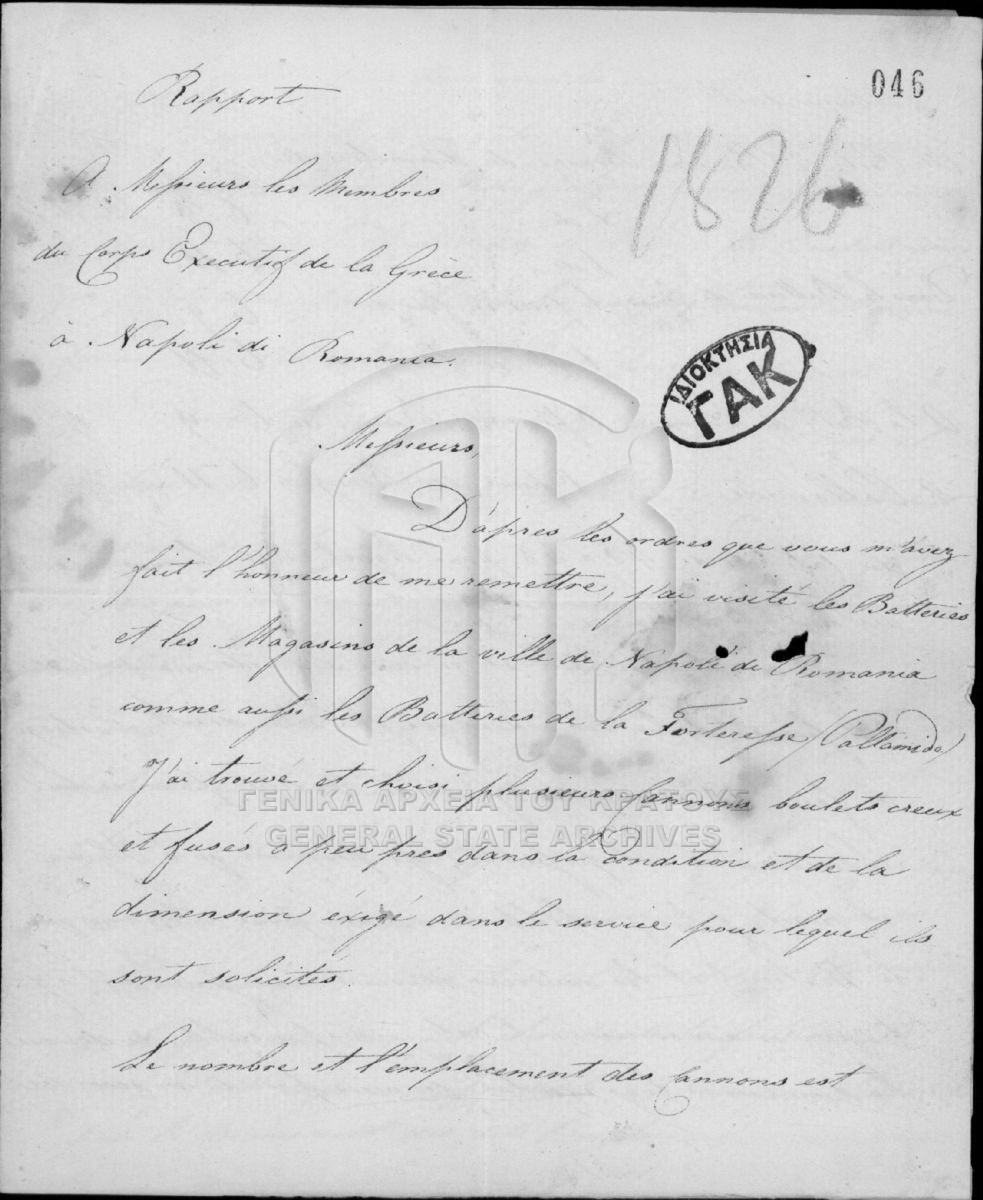 046
Rapport
1826
A Messieurs les Membres
du Corps Executif de la Grèce
à Napoli di Romania.
ΙΔΙΟΚΤΗΣΙΑ
ΓΑΚ
Messieurs,
D'àpres les ordres que vous m'avez
fait l'honneur de me remettre, j'ai visité les Batteries
et les Magasins de la ville de Napoli di Romania
comme aussi les Batteries de la Forteresse (Pallamide)
J'ai trouvé et choisi plusieurs Cannons boulets creux
ΓΕΝΙΚΑ ΑΡΧΕΙΑ ΤΟΥ ΚΡΑΤΟΥΣ
GENERAL STATE ARCHIVES
et fusés a peu pres dans la Condition et de la
dimension éxigé dans le service pour lequel ils
sont solicités.
Le nombre et l'emplacement des Cannons est